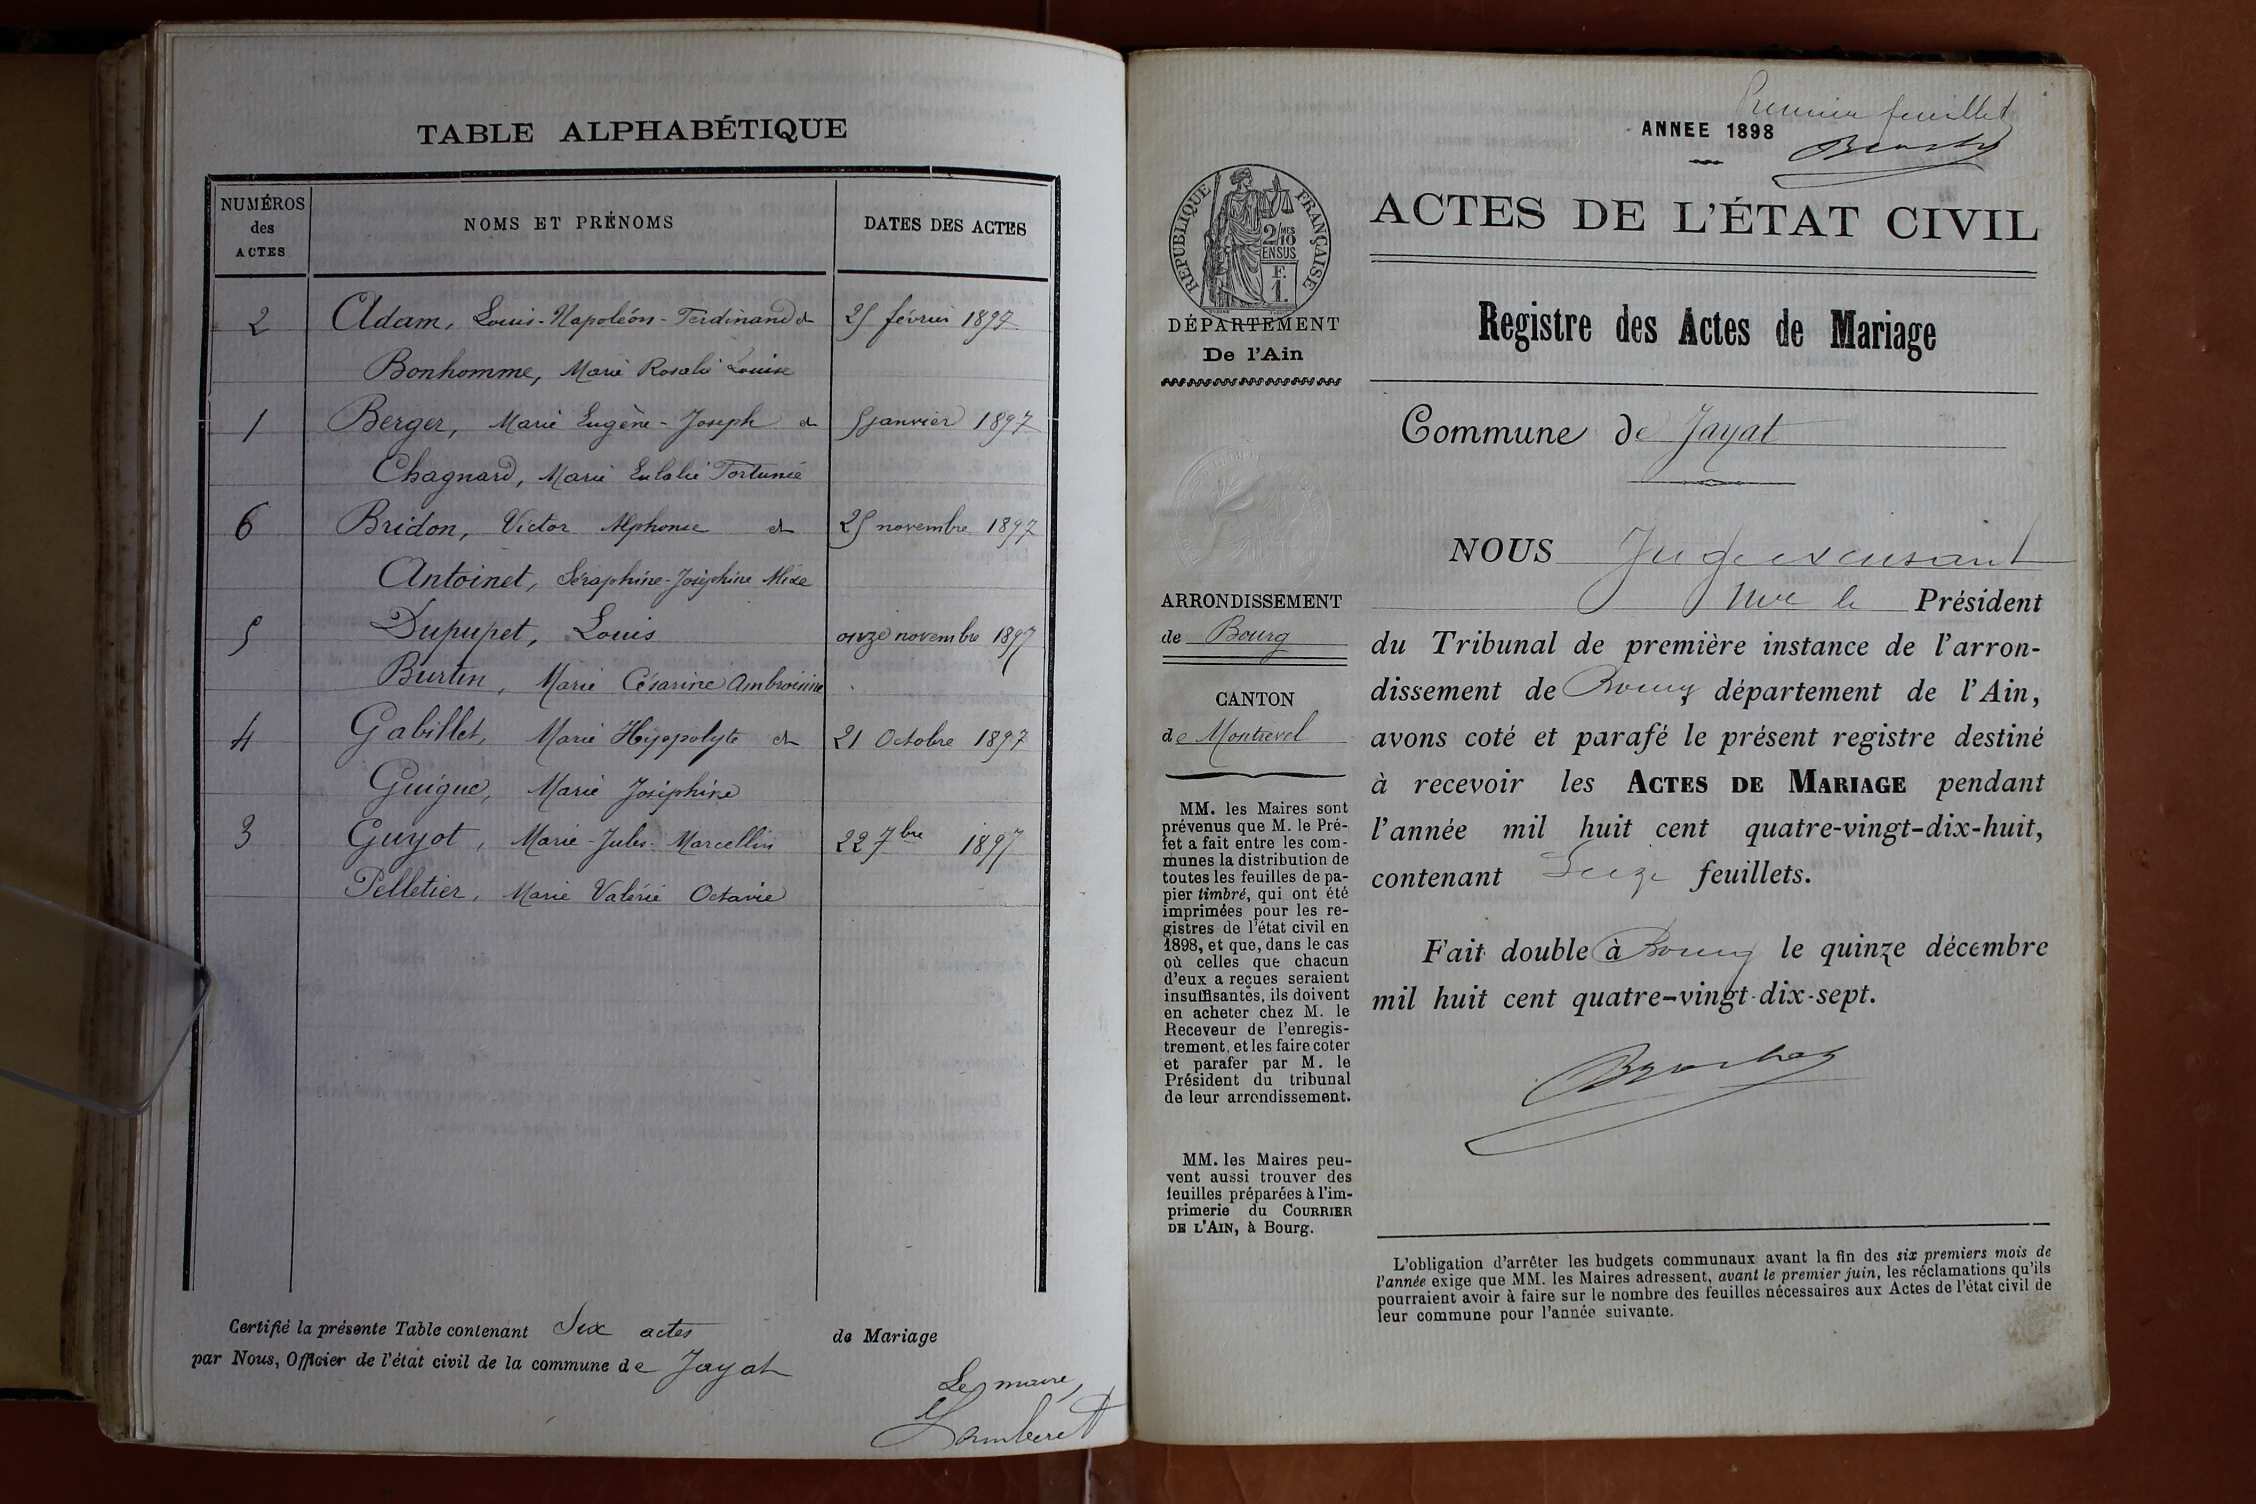 TABLE ALPHABÉTIQUE
NUMÉROS
des
ACTES
NOMS ET PRÉNOMS
DATES DES ACTES
2 Adam, Louis-Napoléon-Ferdinand et 25 février 1897
Bonhomme, Marie Rosalie Louise
1 Berger, Marie Eugène-Joseph et 5 janvier 1897
Chagnard, Marie Eulalie Fortunée
6 Bridon, Victor Alphonse et 25 novembre 1897
Antoinet, Séraphine-Joséphine Alixe
5 Dupupet, Louis onze novembre 1897
Burtin, Marie Césarine Ambroisine
4 Gabillet, Marie Hyppolyte et 21 Octobre 1897
Guigue, Marie Joséphine
3 Guyot, Marie-Jules-Marcellin 22 7bre 1897
Pelletier, Marie Valérie Octavie
Certifié la présente Table contenant Six actes de Mariage
par Nous, Officier de l'état civil de la commune de Jayat
Le maire,
Premier feuillet
ANNEE 1898
RÉPUBLIQUE FRANÇAISE
2/10 MES
EN SUS
F.
1.
DÉPARTEMENT
De l'Ain
ACTES DE L'ÉTAT CIVIL
Registre des Actes de Mariage
Commune de Jayat
ARRONDISSEMENT
de Bourg
CANTON
de Montrevel
MM. les Maires sont
prévenus que M. le Pré-
fet a fait entre les com-
munes la distribution de
toutes les feuilles de pa-
pier timbré, qui ont été
imprimées pour les re-
gistres de l'état civil en
1898, et que, dans le cas
où celles que chacun
d'eux a reçues seraient
insuffisantes, ils doivent
en acheter chez M. le
Receveur de l'enregis-
trement, et les faire coter
et parafer par M. le
Président du tribunal
de leur arrondissement.
MM. les Maires peu-
vent aussi trouver des
feuilles préparées à l'im-
primerie du COURRIER
DE L'AIN, à Bourg.
NOUS Juge
le Président
du Tribunal de première instance de l'arron-
dissement de Bourg département de l'Ain,
avons coté et parafé le présent registre destiné
à recevoir les ACTES DE MARIAGE pendant
l'année mil huit cent quatre-vingt-dix-huit,
contenant Seize feuillets.
Fait double à Bourg le quinze décembre
mil huit cent quatre-vingt-dix-sept.
L'obligation d'arrêter les budgets communaux avant la fin des six premiers mois de
l'année exige que MM. les Maires adressent, avant le premier juin, les réclamations qu'ils
pourraient avoir à faire sur le nombre des feuilles nécessaires aux Actes de l'état civil de
leur commune pour l'année suivante.